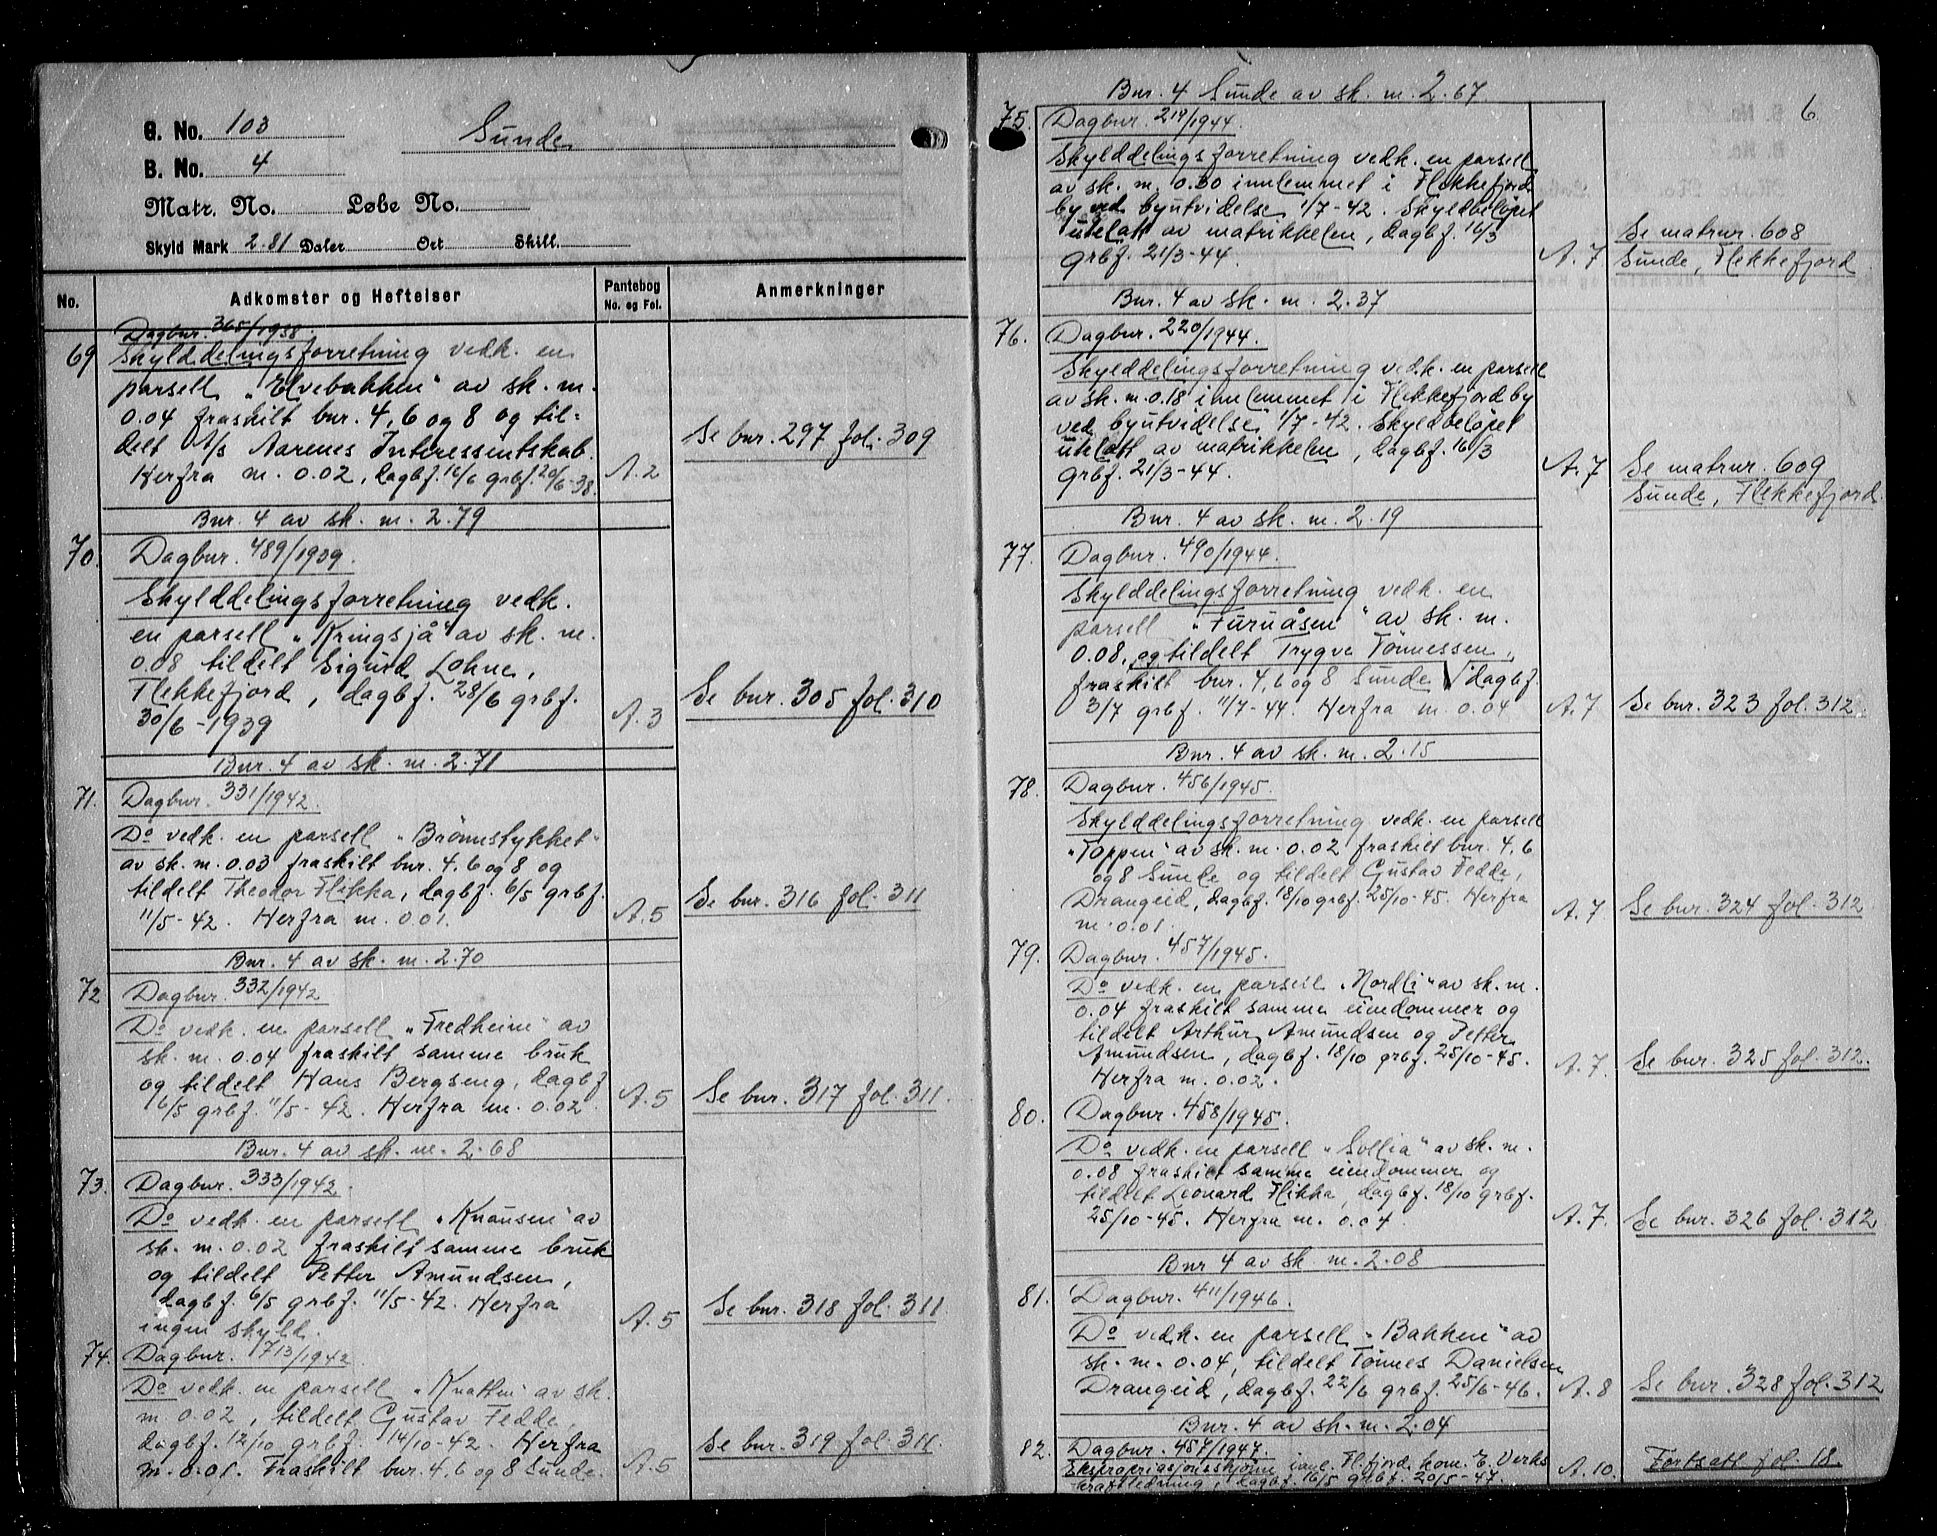 G. No. 103
Sunde
B. No. 4
Matr. No. Løbe No.
Skyld Mark 2.81 Daler Ort Skill.
No. Adkomster og Heftelser Pantebog No. og Fol. Anmerkninger
Dagbnr. 365/1938.
69 Skylddelingsforretning vedk. en
parsell „Elvebakken" av sk. m.
0.04 fraskilt bnr. 4, 6 og 8 og til-
delt A/s Aarenes Interessentskab.
Herfra m. 0.02, dagbf. 16/6 grbf. 20/6-38. A.2
Se bnr. 297 fol. 309
Bnr. 4 av sk. m. 2.79
70. Dagbnr. 489/1939.
Skylddelingsforretning vedk.
en parsell „Kringsjå" av sk. m.
0.08 tildelt Sigurd Lohne,
Flekkefjord, dagbf. 28/6 grbf.
30/6-1939 A.3
Se bnr. 305 fol. 310
Bnr. 4 av sk. m. 2.71
71. Dagbnr. 331/1942.
Do vedk. en parsell „Brønnstykket"
av sk. m. 0.03 fraskilt bnr. 4, 6 og 8 og
tildelt Theodor Flikka, dagbf. 6/5 grbf.
11/5-42. Herfra m. 0.01. A.5
Se bnr. 316 fol. 311
Bnr. 4 av sk. m. 2.70
72 Dagbnr. 332/1942
Do vedk. en parsell „Fredheim" av
sk. m. 0.04 fraskilt samme bruk
og tildelt Hans Bergseng, dagbf
6/5 grbf. 11/5-42. Herfra m. 0.02. A.5
Se bnr. 317 fol. 311.
Bnr. 4 av sk. m. 2.68
73. Dagbnr. 333/1942.
Do vedk. en parsell „Knausen" av
sk. m. 0.02 fraskilt samme bruk
og tildelt Petter Amundsen,
dagbf. 6/5 grbf. 11/5-42. Herfra
ingen skyld. A.5
Se bnr. 318 fol. 311
74. Dagbnr. 713/1942.
Do vedk. en parsell „Knatten" av sk.
m 0.02, tildelt Gustav Fedde.
dagbf. 12/10 grbf. 14/10-42. Herfra
m. 0.01. Fraskilt bnr. 4, 6 og 8 Sunde. A.5
Se bnr. 319 fol. 311.
6.
Bnr. 4 Sunde av sk. m. 2.67.
75. Dagbnr. 219/1944.
Skylddelingsforretning vedk. en parsell
av sk. m. 0.30 innlemmet i Flekkefjord
by ved byutvidelse 1/7-42. Skyldbeløpet
utelatt av matrikkelen, dagbf. 16/3
grbf. 21/3-44. A.7
Se matrnr. 608
Sunde, Flekkefjord
Bnr. 4 av sk. m. 2.37
76. Dagbnr. 220/1944.
Skylddelingsforretning vedk. en parsell
av sk. m. 0.18 innlemmet i Flekkefjord by
ved byutvidelse 1/7-42. Skyldbeløpet
utelatt av matrikkelen, dagbf. 16/3
grbf. 21/3-44. A.7
Se matrnr. 609
Sunde, Flekkefjord.
Bnr. 4 av sk. m. 2.19
77. Dagbnr. 490/1944.
Skylddelingsforretning vedk. en
parsell „Furuåsen" av sk. m.
0.08, og tildelt Trygve Tønnessen,
fraskilt bnr. 4, 6 og 8 Sunde √ dagbf.
3/7 grbf. 11/7-44. Herfra m. 0.04 A.7
Se bnr. 323 fol. 312.
Bnr. 4 av sk. m. 2.15
78. Dagbnr. 456/1945.
Skylddelingsforretning vedk. en parsell
„Toppen" av sk. m. 0.02 fraskilt bnr. 4, 6
og 8 Sunde og tildelt Gustav Fedde,
Drangeid, dagbf. 18/10 grbf. 25/10-45. Herfra
m. 0.01. A.7
Se bnr. 324 fol. 312
79. Dagbnr. 457/1945.
Do vedk. en parsell „Nordli" av sk. m.
0.04 fraskilt samme eiendommer og
tildelt Arthur Amundsen og Petter
Amundsen, dagbf. 18/10 grbf. 25/10-45.
Herfra m. 0.02. A.7.
Se bnr. 325 fol. 312.
80. Dagbnr. 458/1945.
Do vedk. en parsell „Sollia" av sk. m.
0.08 fraskilt samme eiendommer og
tildelt Leonard Flikka, dagbf. 18/10 grbf.
25/10-45. Herfra m. 0.04. A.7.
Se bnr. 326 fol. 312
Bnr 4 av sk m. 2.08
81. Dagbnr. 411/1946.
Do vedk. en parsell „Bakken" av
sk. m. 0.04, tildelt Tønnes Danielsen
Drangeid, dagbf. 22/6 grbf. 25/6-46. A.8
Se bnr. 328 fol. 312
Bnr. 4 av sk. m. 2.04
82. Dagbnr. 457/1947.
Ekspropriasjonsskjønn Fl.fjord kom. E. Verks
kraftledning, dagbf. 16/5 grbf. 20/5-47. A.10.
Fortsatt fol. 18.